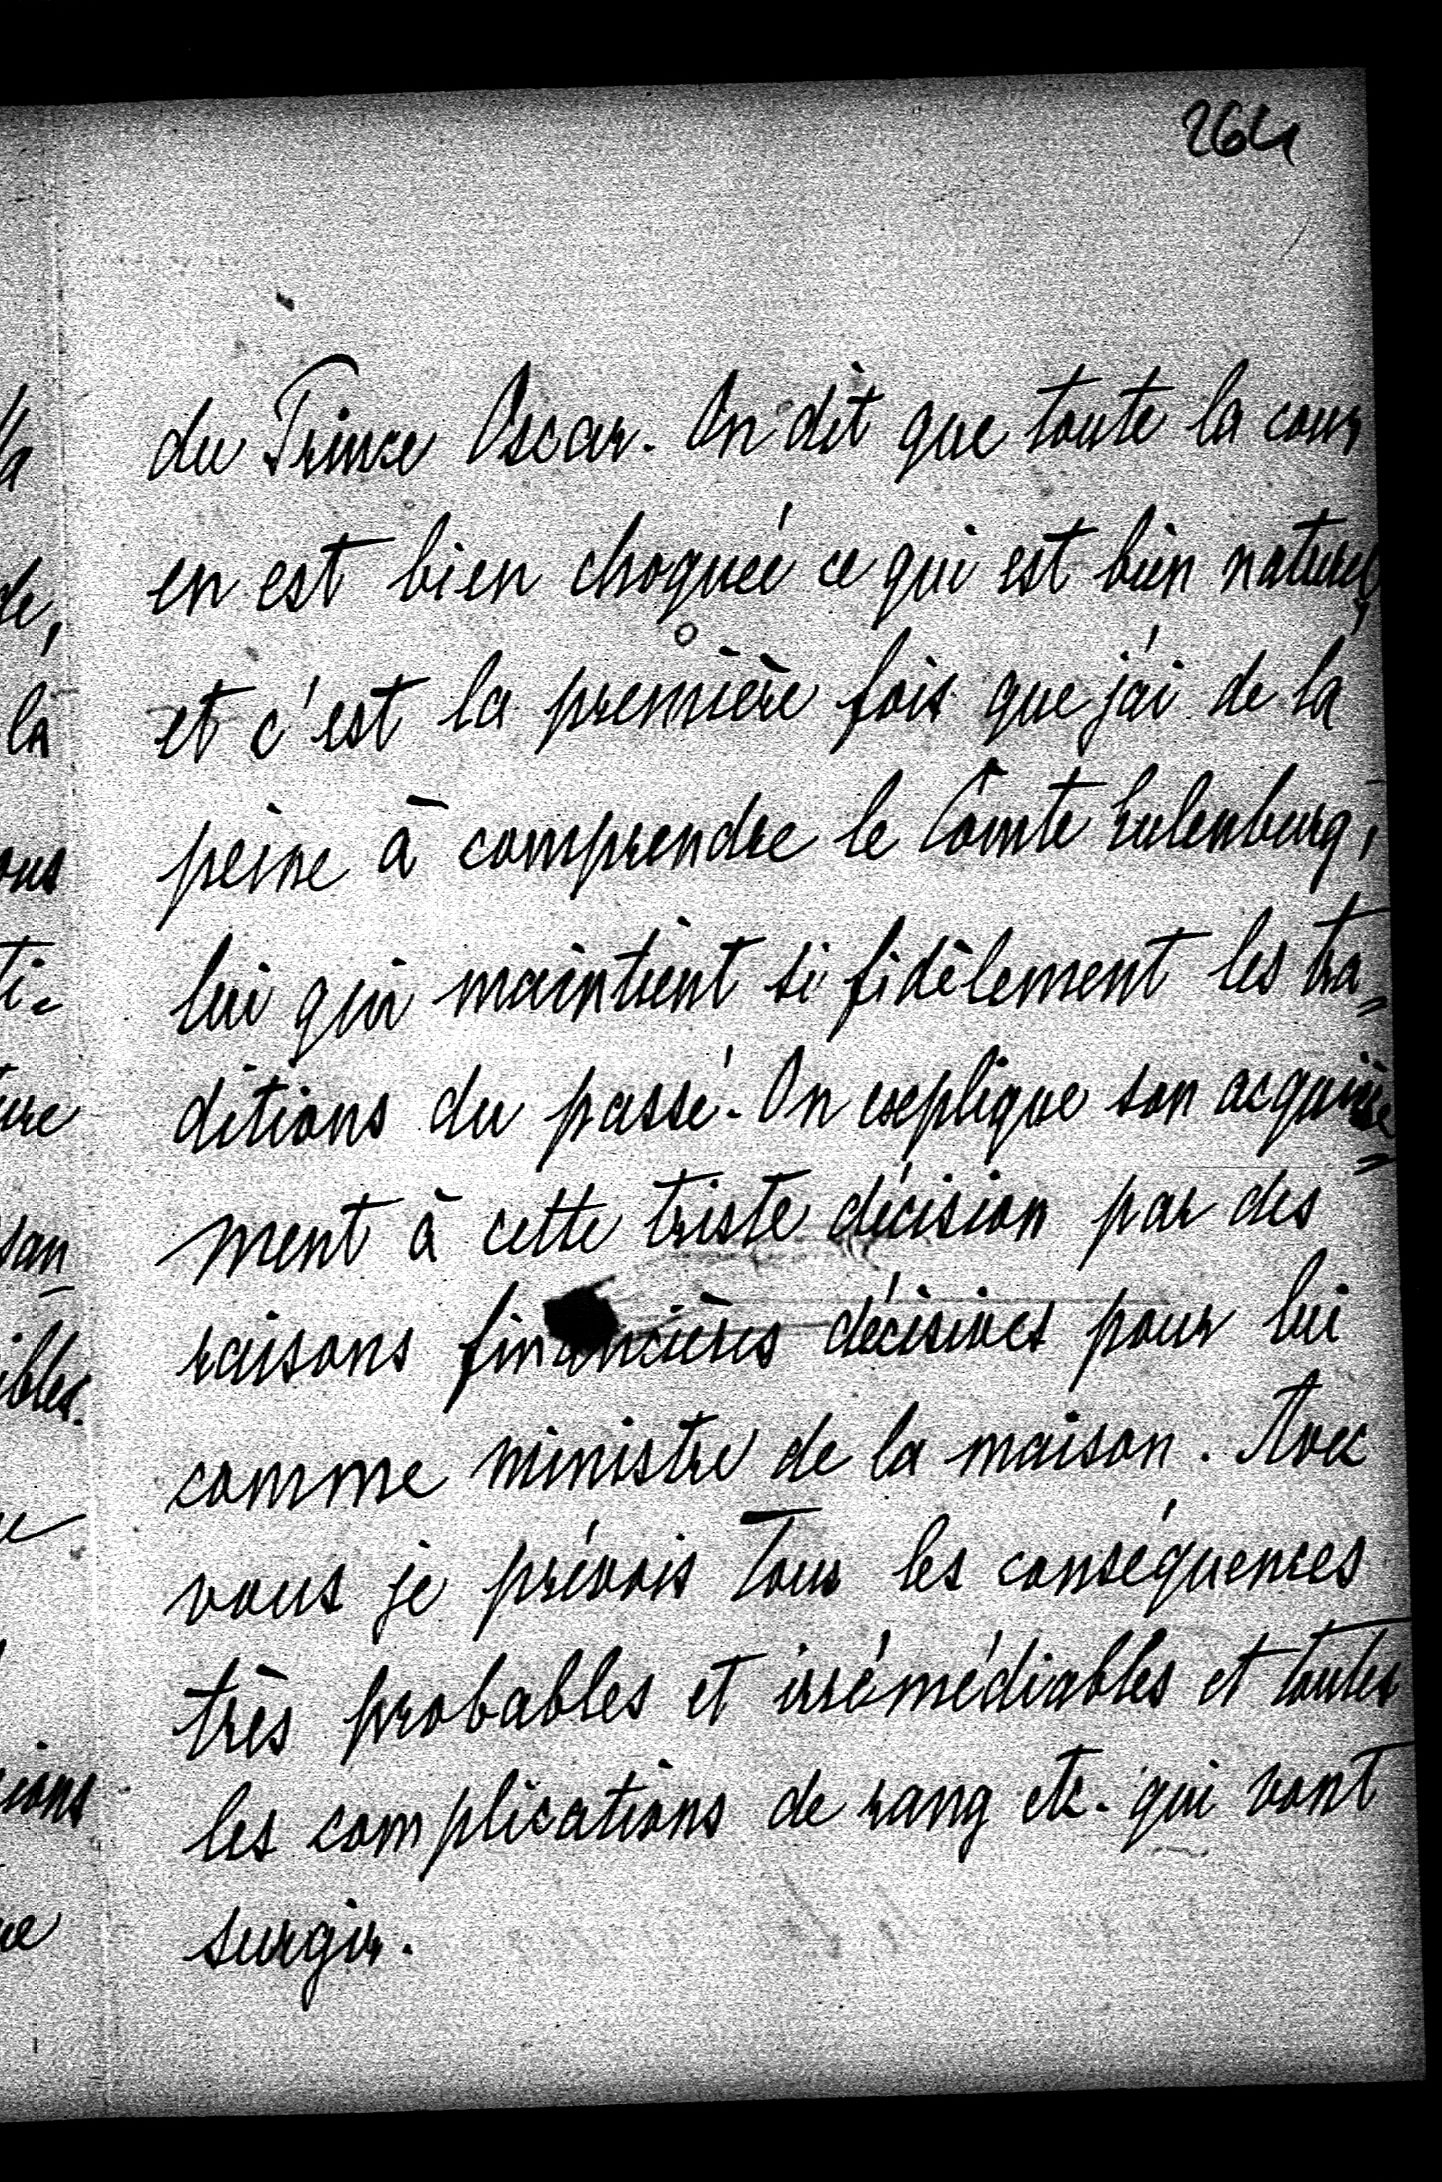 264
du Prince Oscar. On dit que toute la cour
en est bien choquée ce qui est bien naturel,
et c'est la première fois que j'ai de la
peine à comprendre le Comte Eulenburg,
lui qui maintient si fidèlement les tra=
ditions du passé. On explique son acquiesce=
ment à cette triste décision par des
raisons financières décisives pour lui
comme ministre de la maison. Avec
vous je prévois tous les conséquences
très probables et irrémédiables et toutes
les complications de rang etc. qui vont
surgir.